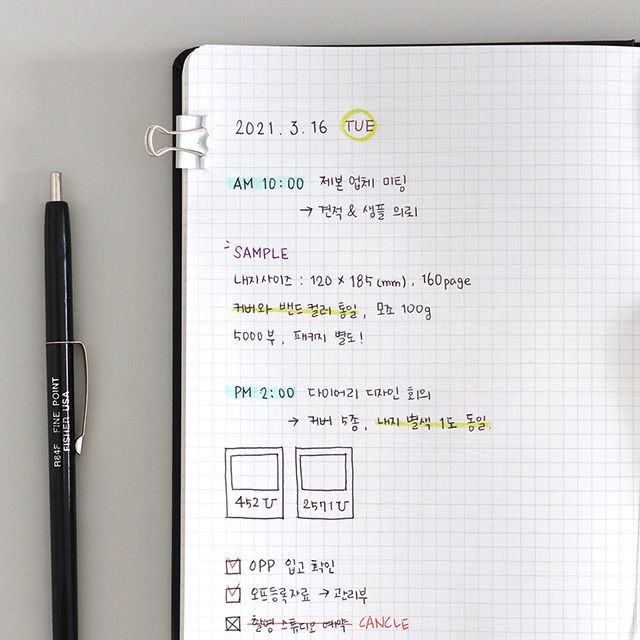 2021.3.16 TUE
AM 10:00 제본 업체 미팅
→ 견적 & 샘플 의뢰
SAMPLE
내지사이즈 : 120 × 185 (mm), 160page
커버와 밴드컬러 통일, 모조 100g
5000부, 패키지 별도!
PM 2:00 다이어리 디자인 회의
→ 커버 5종, 내지 별색 1도 동일.
452U 2571U
OPP 입고 확인
오프등록자료 → 관리부
촬영 스튜디오 예약 CANCLE
R84F FINE POINT
FISHER USA